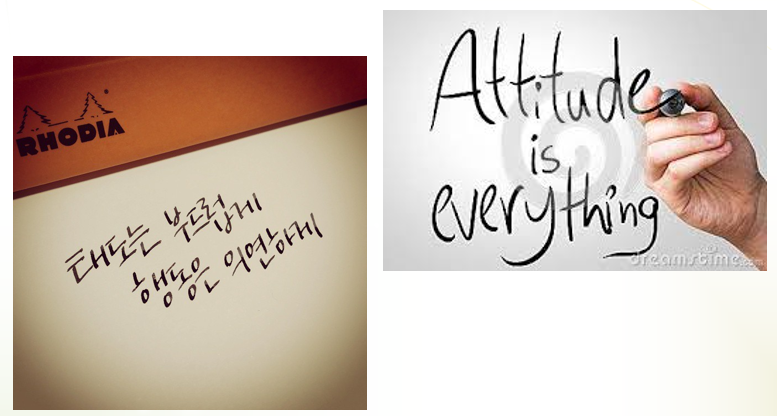 RHODIA
태도는 부드럽게
행동은 의연하게
Attitude
is
everything
dreamstime.com